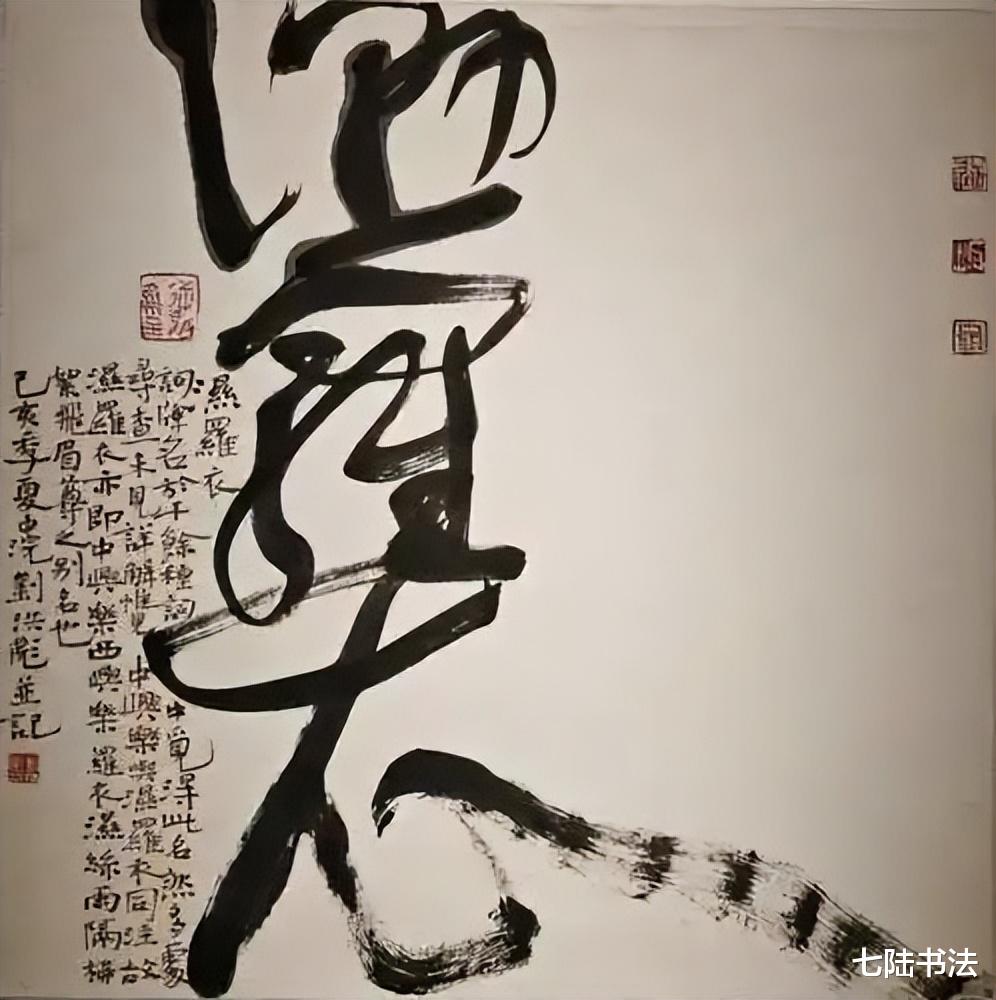 濕羅衣
濕羅衣
詞牌名於千餘種詞中覓得此名然多處
尋查未見詳解惟見中興樂與濕羅衣同注故
濕羅衣亦即中興樂西興樂羅衣濕絲雨隔
絮飛眉尊之别名也
己亥季夏劉洪彪並記
七陆书法